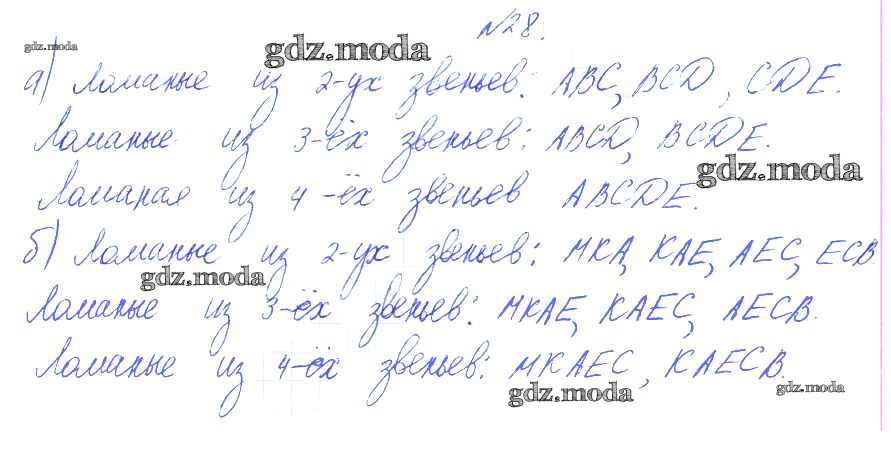 №28.
gdz.moda
gdz.moda
а) Ломаные из 2-ух звеньев: ABC, BCD, CDE.
Ломаные из 3-ёх звеньев: ABCD, BCDE.
gdz.moda
Ломаная из 4-ёх звеньев ABCDE.
б) Ломаные из 2-ух звеньев: MKA, KAE, AEC, ECB
gdz.moda
Ломаные из 3-ёх звеньев: MKAE, KAEC, AECB.
Ломаные из 4-ёх звеньев: MKAEC, KAECB.
gdz.moda
gdz.moda